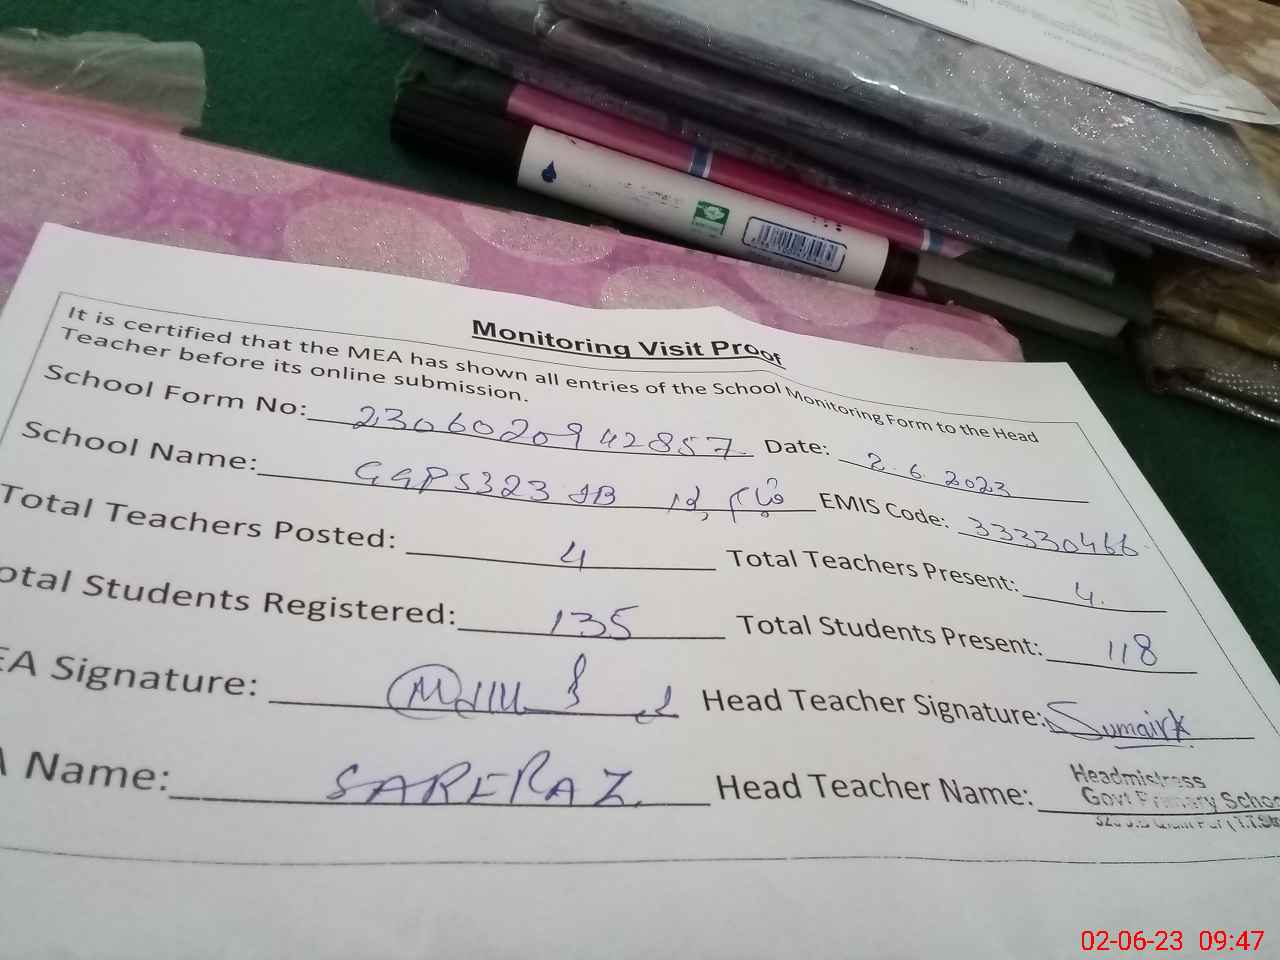 Monitoring Visit Proof
It is certified that the MEA has shown all entries of the School Monitoring Form to the Head
Teacher before its online submission.
School Form No: 2306020942857 Date: 2.6.2023
School Name: GGPS 323 JB EMIS Code: 33330466
Total Teachers Posted: 4 Total Teachers Present: 4.
otal Students Registered: 135 Total Students Present: 118
EA Signature: Head Teacher Signature: Sumaira
A Name: SARFRAZ Head Teacher Name: Headmistress
Govt Primary Schoo
02-06-23 09:47